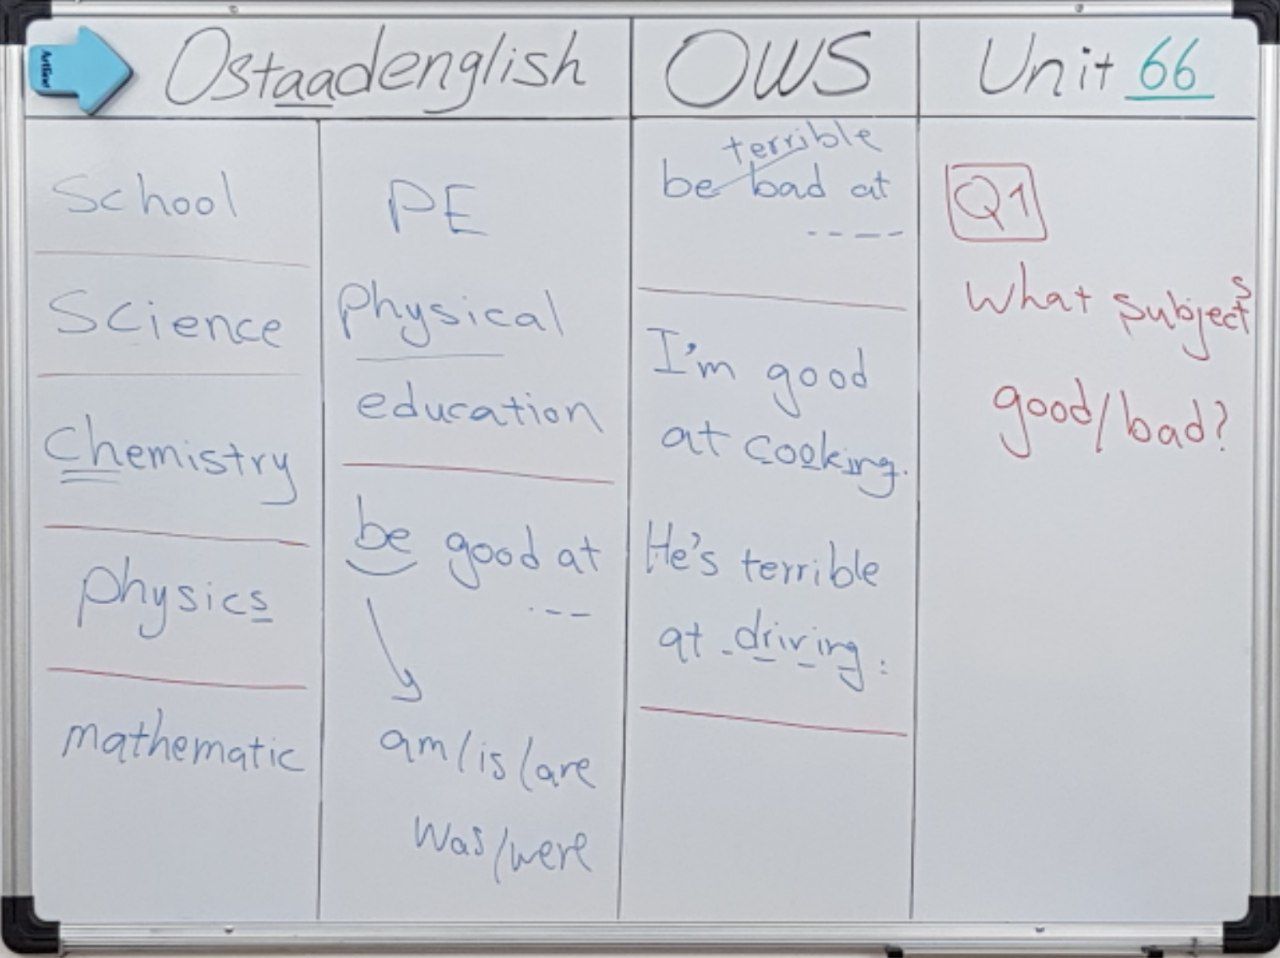 Ostaadenglish
OWS
Unit 66
School
Science
Chemistry
physics
mathematic
PE
physical
education
be good at
---
am/is/are
was/were
terrible
be bad at
----
I'm good
at cooking.
He's terrible
at driving.
Q1
What subjects
good/bad?